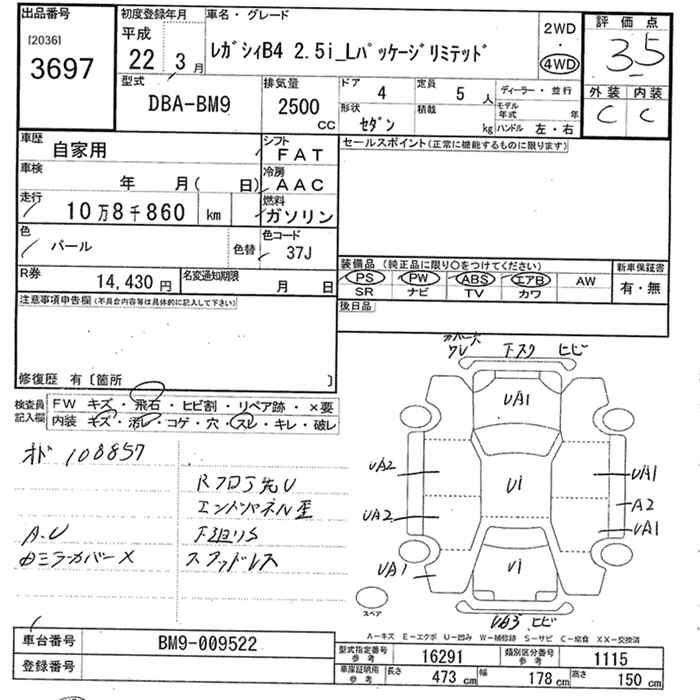 出品番号
[2036]
3697
初度登録年月
平成
22 3 月
車名・グレード
レガシィB4 2.5i_Lパッケージリミテッド
2WD
・
4WD
評価点
3.5
外装 内装
C C
型式
DBA-BM9
排気量
2500
CC
ドア 4
定員 5 人
形状 セダン
積載 kg
ディーラー・並行
モデル年式 年
ハンドル 左・右
車歴
自家用
シフト
FAT
セールスポイント(正常に機能するものに限ります)
車検
年 月( 日)
冷房
AAC
走行
10万8千860 km
燃料
ガソリン
色
パール
色替
色コード
37J
R券
14,430 円
名変通知期限
月 日
装備品 (純正品に限り○をつけてください)
新車保証書
PS PW ABS エアB AW
SR ナビ TV カワ
有・無
注意事項申告欄(不具合内容等は具体的に記入して下さい)
後日品
修復歴 有〔箇所 〕
検査員
記入欄
FW キズ・飛石・ヒビ割・リペア跡・×要
内装 キズ・汚レ・コゲ・穴・スレ・キレ・破レ
オド 108857
RフロJ先U
エンドパネル歪
A.U
下廻りS
ミラーカバーX
スペアタイヤレス
カバー穴
ワレ
下スク ヒビ
UA1
UA2
U1
UA1
A2
UA2
UA1
UA1
U1
スペア
UA3 ヒビ
A-キズ E-エクボ U-凹み W-補修跡 S-サビ C-腐食 XX-交換済
車台番号
BM9-009522
登録番号
型式指定番号
参考
16291
類別区分番号
参考
1115
車庫証明用
参考
長さ 473 cm
幅 178 cm
高さ 150 cm